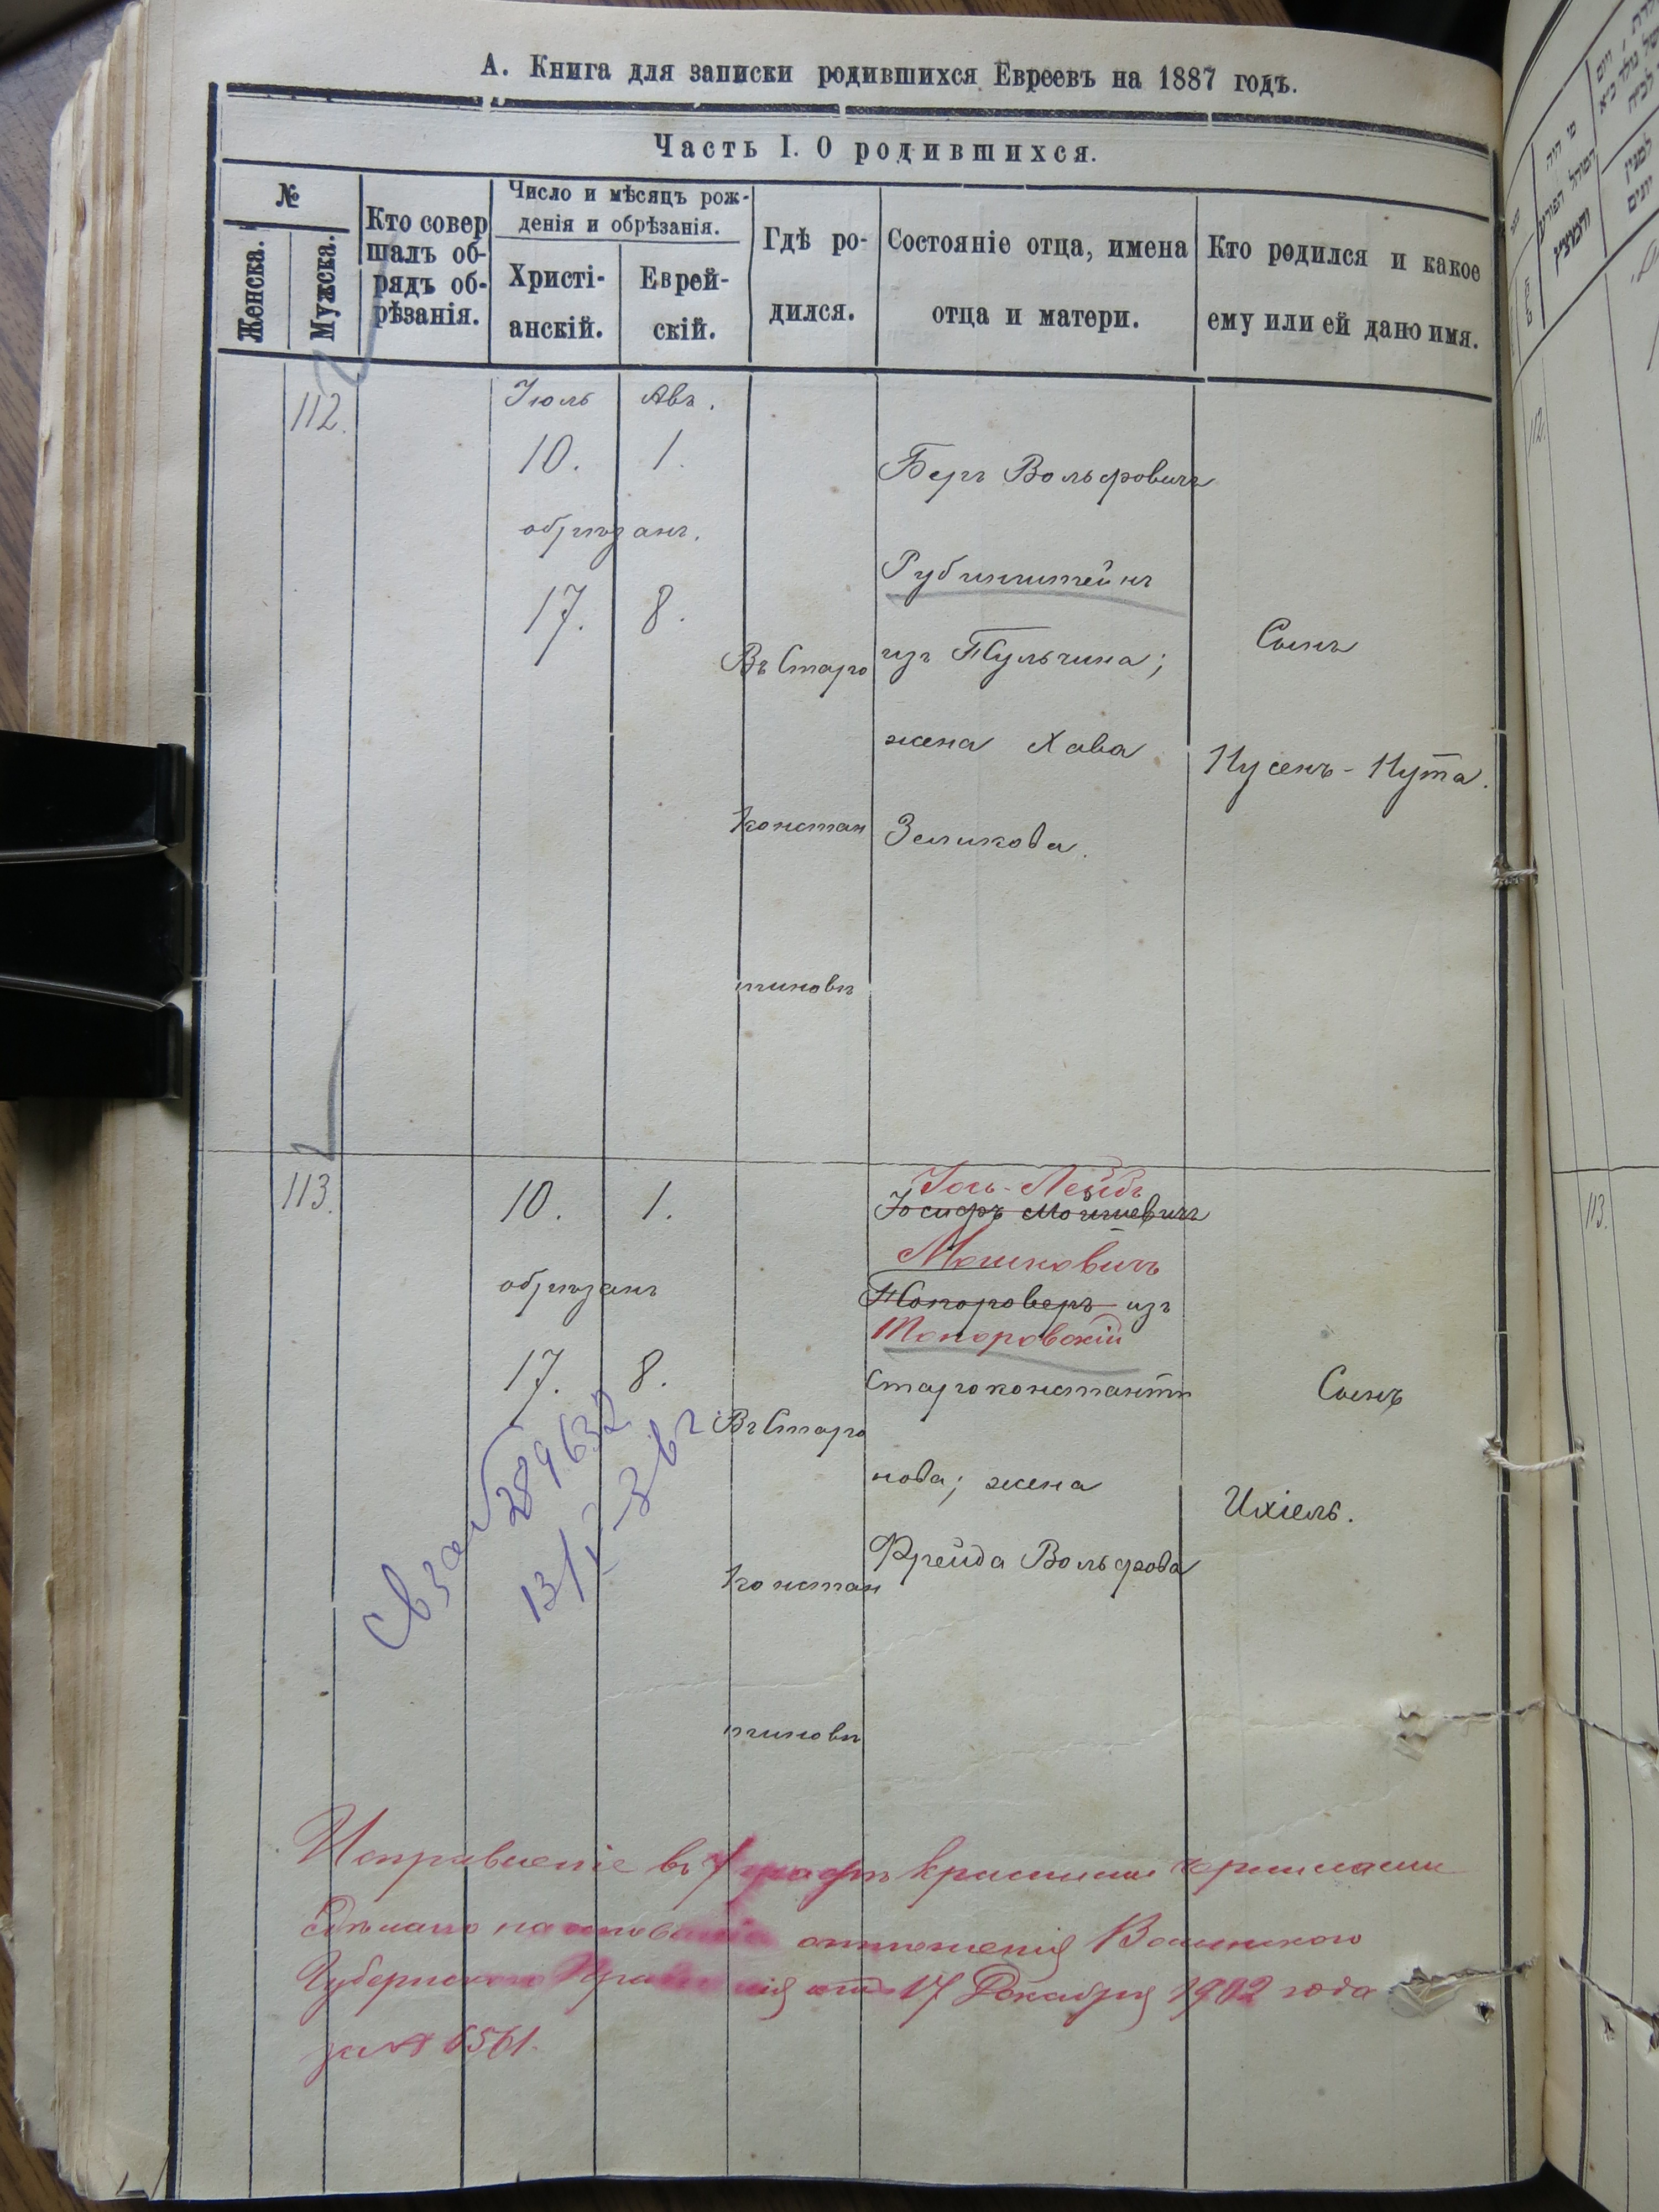 А. Книга для записки родившихся Евреевъ на 1887 годъ.
Часть I. О родившихся.
№
Женска.
Мужска.
Кто совер
шалъ об-
рядъ об-
рѣзанія.
Число и мѣсяцъ рож-
денія и обрѣзанія.
Христі-
анскій.
Еврей-
скій.
Гдѣ ро-
дился.
Состояніе отца, имена
отца и матери.
Кто родился и какое
ему или ей дано имя.
112.
Іюль Авъ.
10. 1.
обрѣзанъ.
17. 8.
Въ Старо
констан
тиновѣ
Беръ Вольфовичъ
Рубинштейнъ
изъ Тульчина;
жена Хава
Зеликова.
Сынъ
Нусенъ-Нута.
113.
10. 1.
обрѣзанъ
17. 8.
Въ Старо
констан
тиновѣ
Іось-Лейбъ
Іосифъ Мошкевичъ
Мошковичъ
Топороверъ изъ
Топоровскій
Староконстанти
нова; жена
Фрейда Вольфова
Сынъ
Ихіель.
289632
Исправленіе въ 7 графѣ красными чернилами
сдѣлано на основаніи отношенія Волынскаго
Губернскаго Правленія отъ 17 Декабря 1902 года
за № 6561.
112.
113.